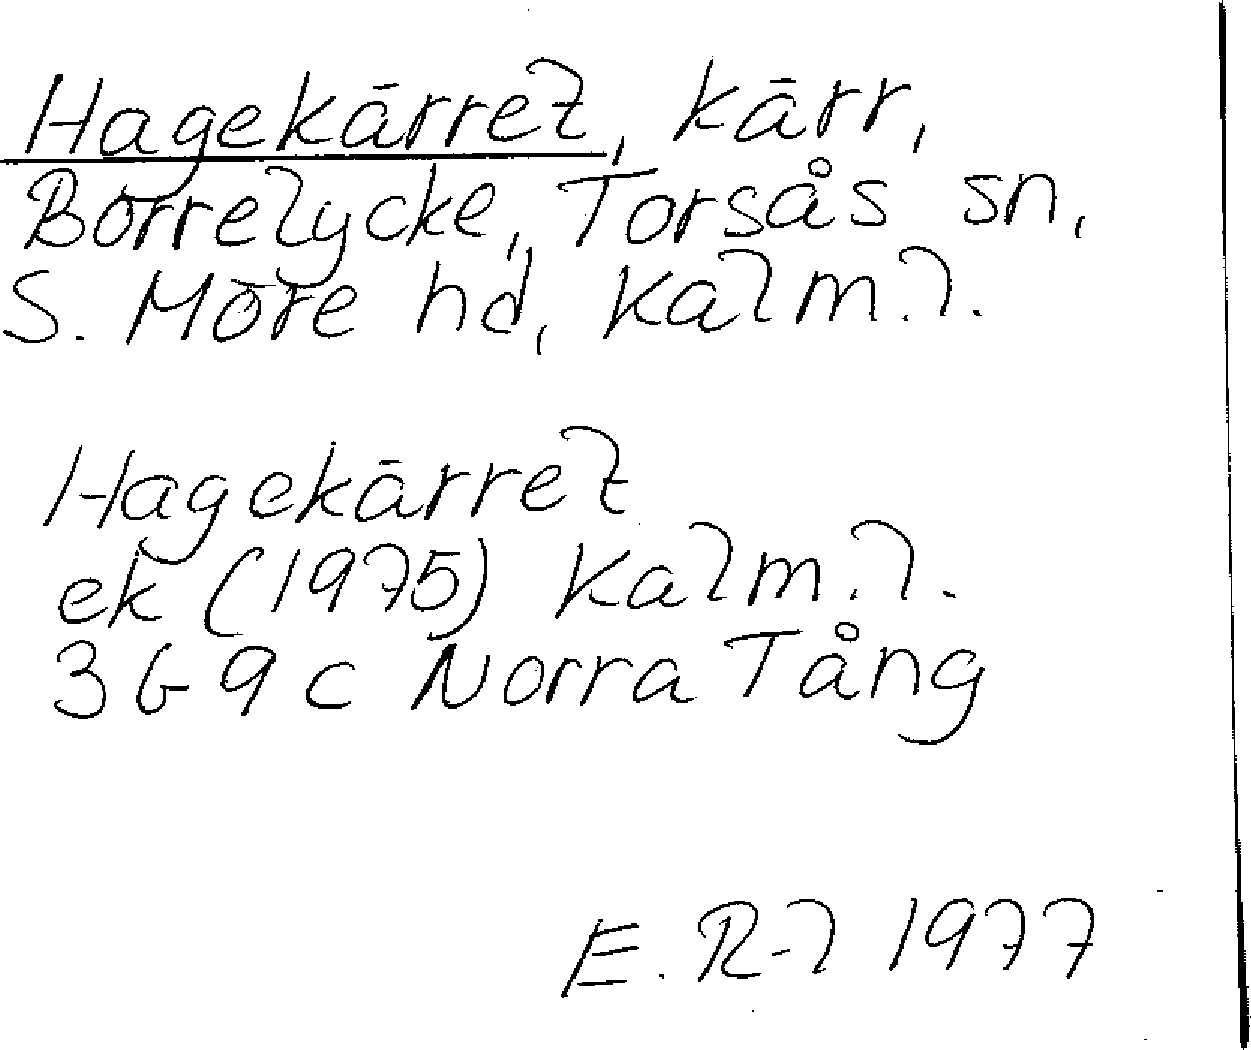 Hagekärret, kärr,
Börrelycke, Torsås sn,
S. Möre hd, Kalm.l.
Hagekärret
ek (1975) Kalm.l.
3G9c Norra Tång
E. R-l 1977